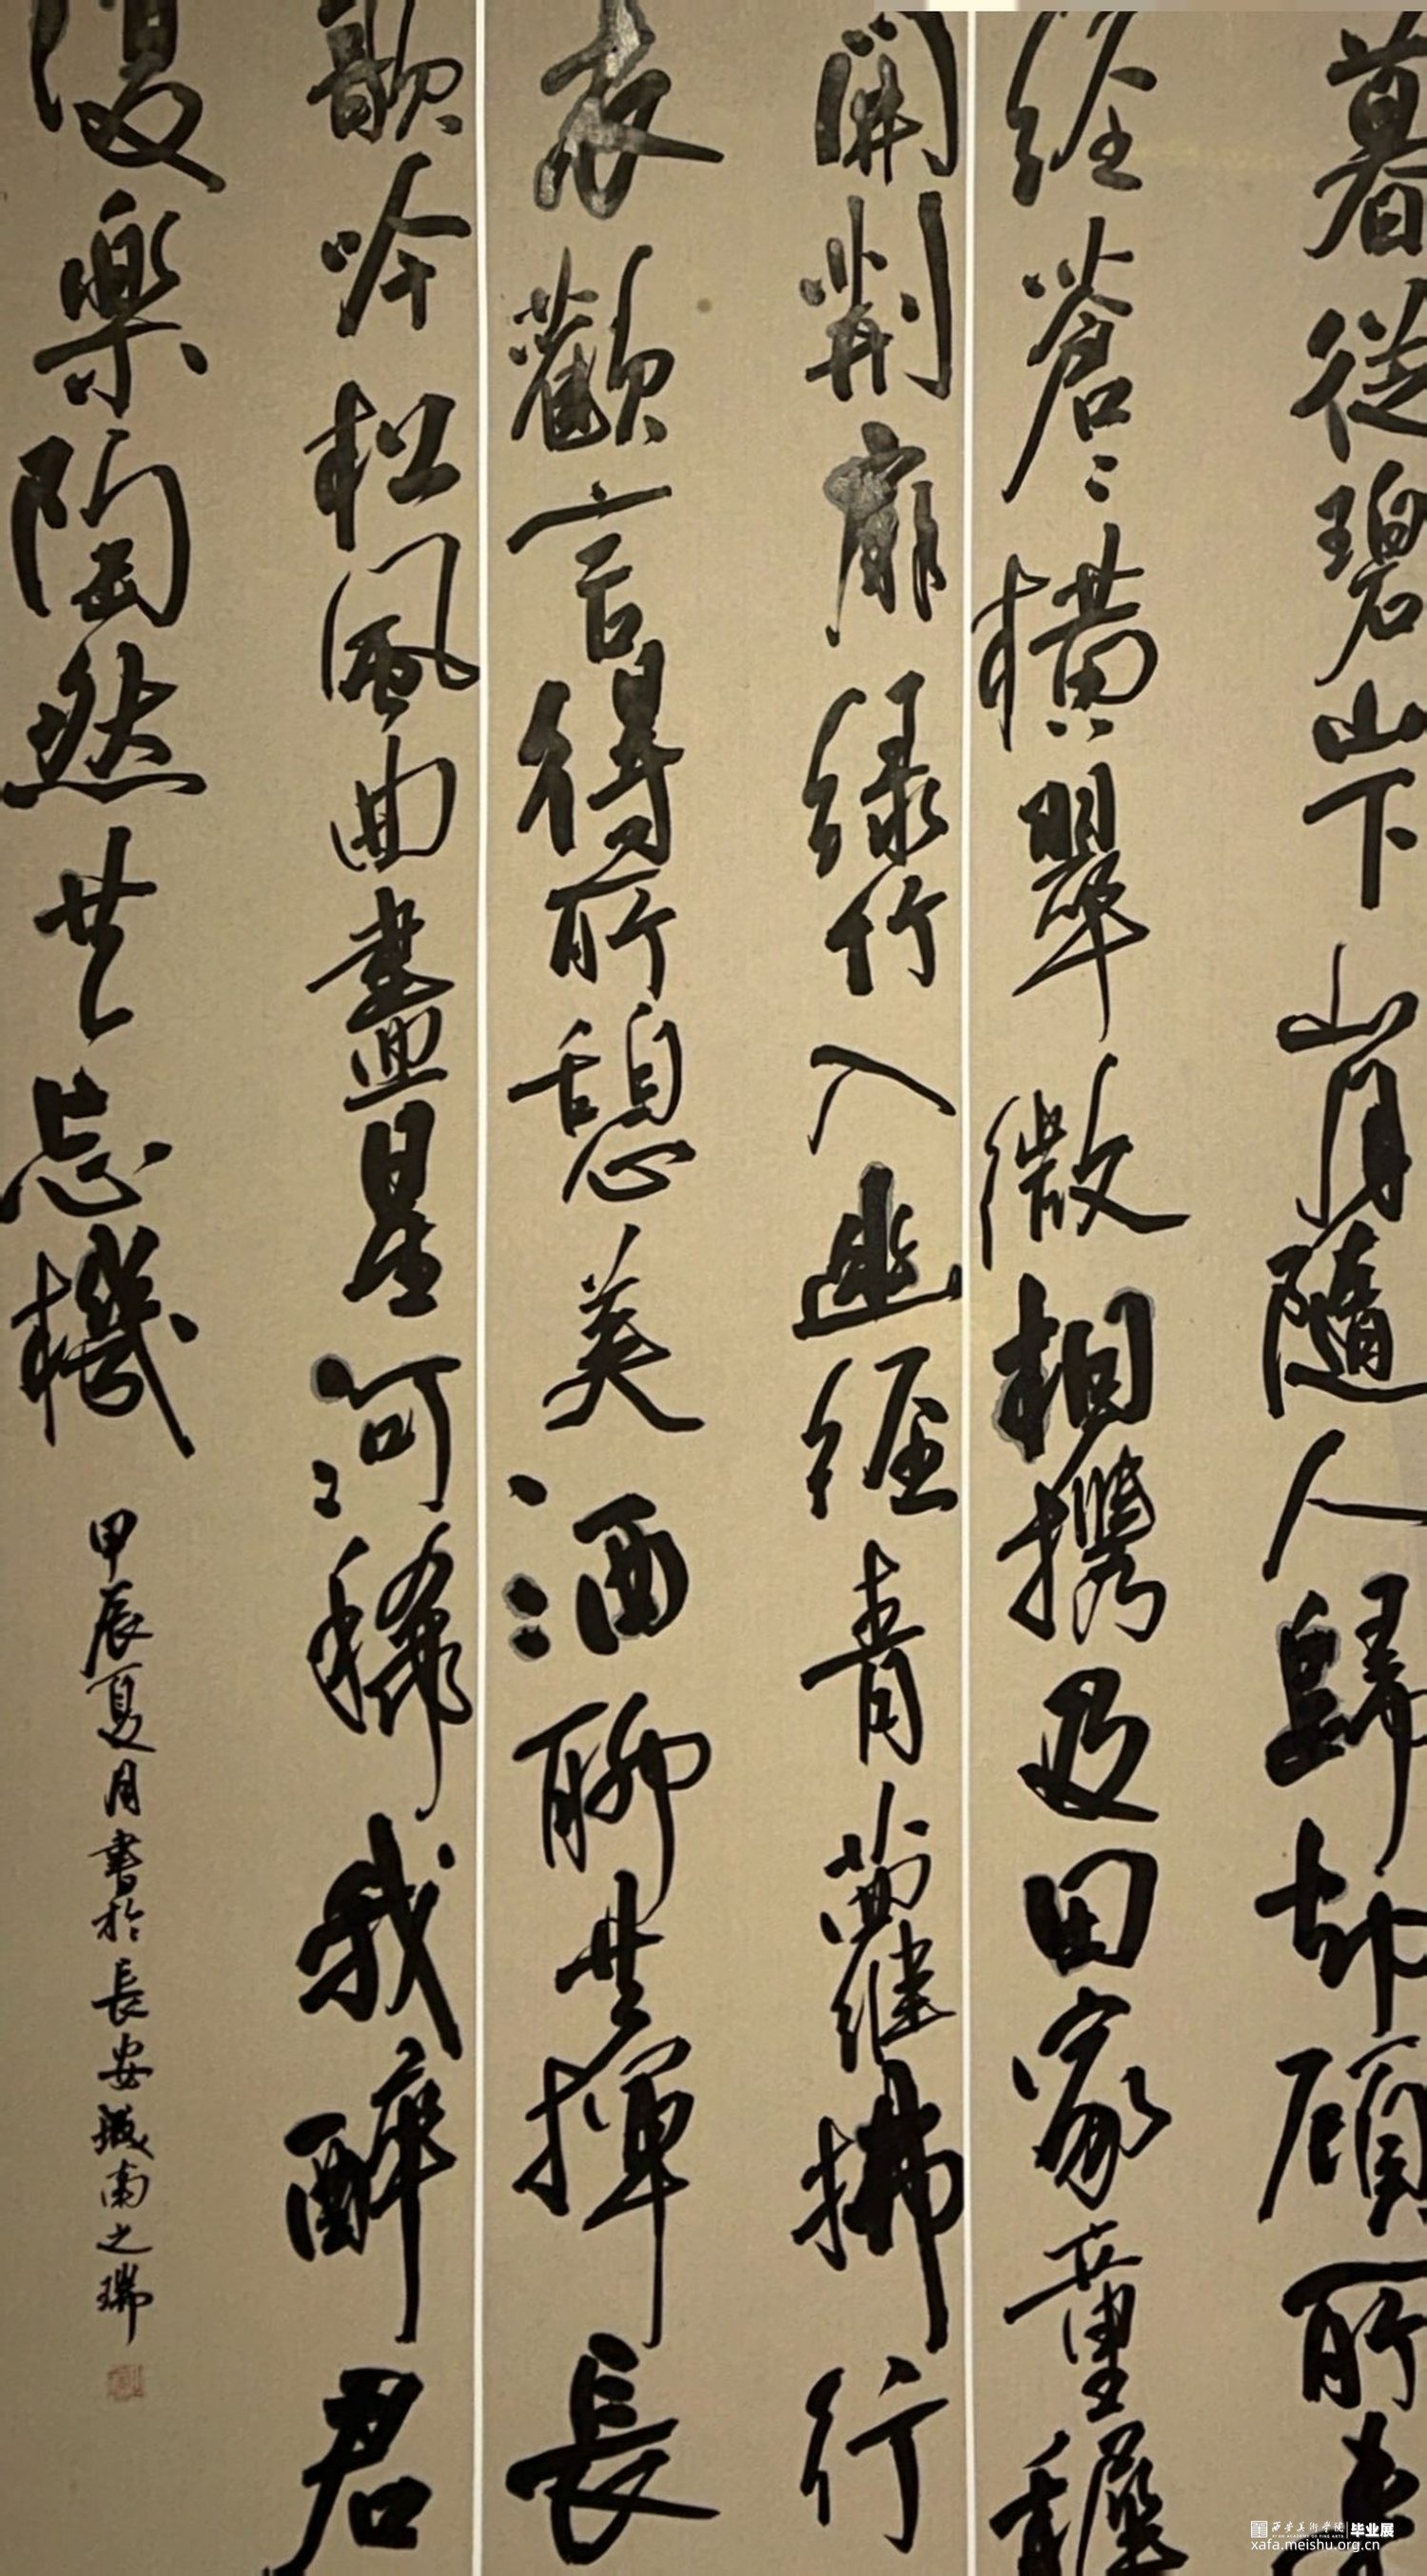 暮從碧山下山月隨人歸却顧所来
經蒼〻橫翠微相攜及田家童穉
開荊扉綠竹入幽經青蘿拂行
衣歡言得所憩美酒聊共揮長
歌吟松風曲盡星河稀我醉君
復樂陶然共忘機
甲辰夏月書於長安城南之瑞
西安美术学院 毕业展
XI'AN ACADEMY OF FINE ARTS
xafa.meishu.org.cn